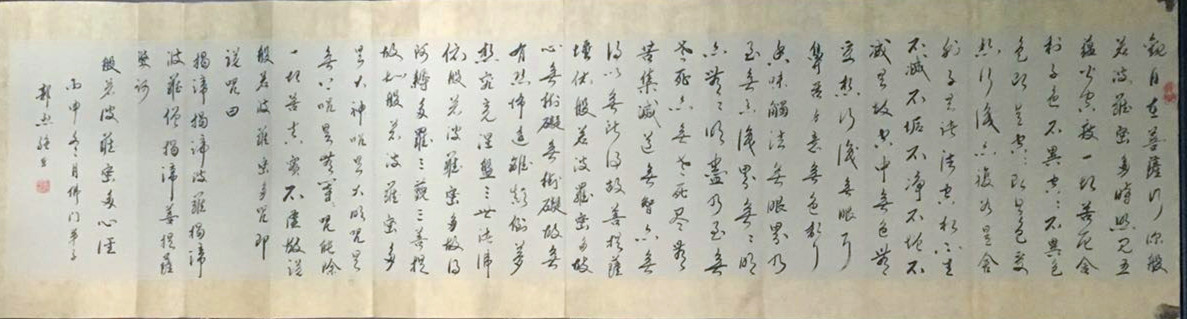 觀自在菩薩行深般
若波羅密多時照見五
蘊皆空度一切苦厄舍
利子色不異空々不異色
色即是空々即是色受
想行識亦復如是舍
利子是諸法空相不生
不滅不垢不淨不增不
減是故空中無色無
受想行識無眼耳
鼻舌身意無色聲
香味觸法無眼界乃
至無意識界無々明
亦無々明盡乃至無
老死亦無老死盡無
苦集滅道無智亦無
得以無所得故菩提薩
埵依般若波羅密多故
心無罣礙無罣礙故無
有恐怖遠離顛倒夢
想究竟涅盤三世諸佛
依般若波羅密多故得
阿耨多羅三藐三菩提
故知般若波羅密多
是大神咒是大明咒是
無上咒是無等等咒能除
一切苦真實不虛故說
般若波羅密多咒即
說咒曰
揭諦揭諦波羅揭諦
波羅僧揭諦菩提薩
婆訶
般若波羅密多心經
丙申冬月佛門弟子
郭